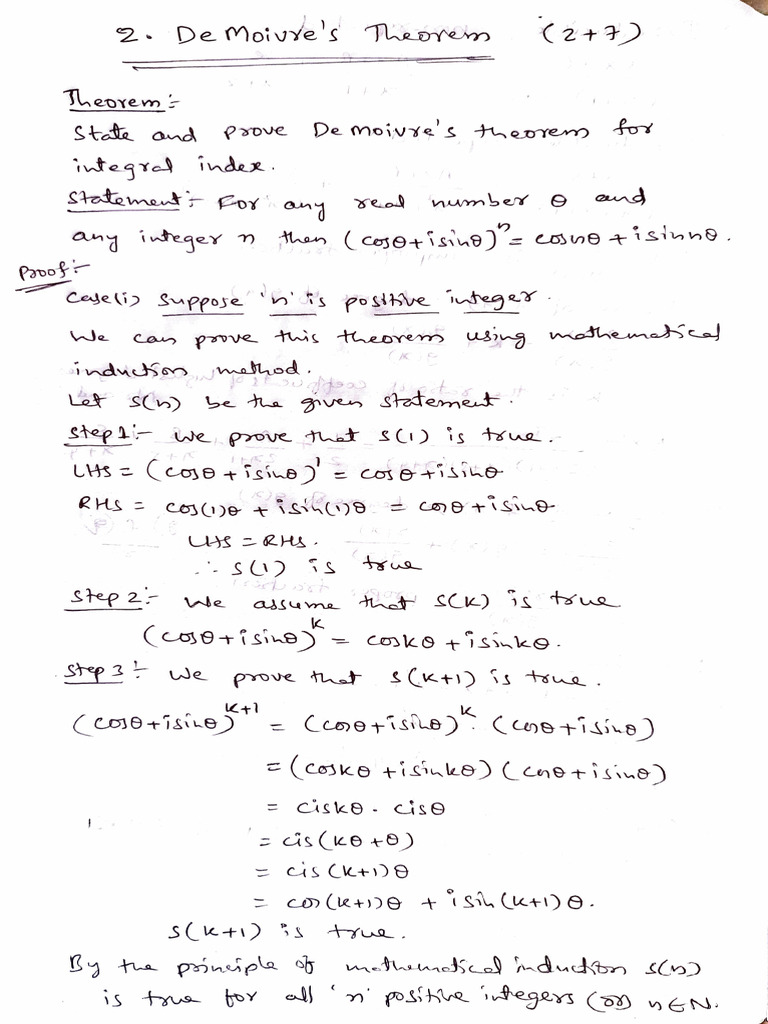 2. De Moivre's Theorem (2+7)
Theorem:-
State and prove De moivre's theorem for
integral index.
Statement:- For any real number θ and
any integer n then (cosθ+isinθ)ⁿ = cosnθ + isinnθ.
Proof:-
Case(i) Suppose 'n' is positive integer.
We can prove this theorem using mathematical
induction method.
Let S(n) be the given statement.
Step 1:- We prove that S(1) is true.
LHS = (cosθ + isinθ)¹ = cosθ + isinθ
RHS = cos(1)θ + isin(1)θ = cosθ + isinθ
LHS = RHS.
∴ S(1) is true
Step 2:- We assume that S(K) is true
(cosθ + isinθ)ᴷ = cosKθ + isinKθ.
Step 3:- We prove that S(K+1) is true.
(cosθ+isinθ)ᴷ⁺¹ = (cosθ+isinθ)ᴷ. (cosθ+isinθ)
= (cosKθ + isinKθ) (cosθ + isinθ)
= cisKθ . cisθ
= cis(Kθ + θ)
= cis(K+1)θ
= cos(K+1)θ + isin(K+1)θ.
S(K+1) is true.
By the principle of mathematical induction S(n)
is true for all 'n' positive integers (or) n∈N.